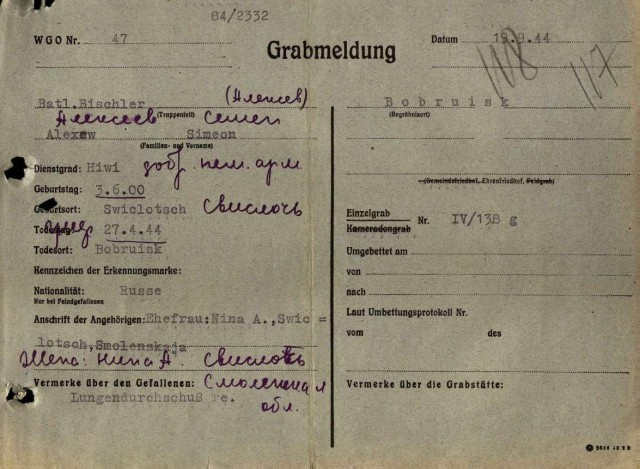 84/2332
WGO Nr. 47
Grabmeldung
Datum 19.9.44
118
117
Batl.Bischler (Алексеев)
Алексеев (Truppenteil) Семен
Alexew Simeon
(Familien- und Vorname)
Dienstgrad: Hiwi добр. нем. арм
Geburtstag: 3.6.00
Geburtsort: Swiclotsch Свислочь
Todestag: 27.4.44
Todesort: Bobruisk
Kennzeichen der Erkennungsmarke:
Nationalität: Russe
Nur bei Feindgefallenen
Anschrift der Angehörigen: Ehefrau:Nina A.,Swic=
lotsch,Smolenskaja
Жена: Нина А. Свислочь
Vermerke über den Gefallenen: Смоленская
обл.
Lungendurchschuß re.
Bobruisk
(Begräbnisort)
(Gemeindefriedhof, Ehrenfriedhof, Feldgrab)
Einzelgrab
Kameradengrab Nr. IV/138 g
Umgebettet am
von
nach
Laut Umbettungsprotokoll Nr.
vom des
Vermerke über die Grabstätte: